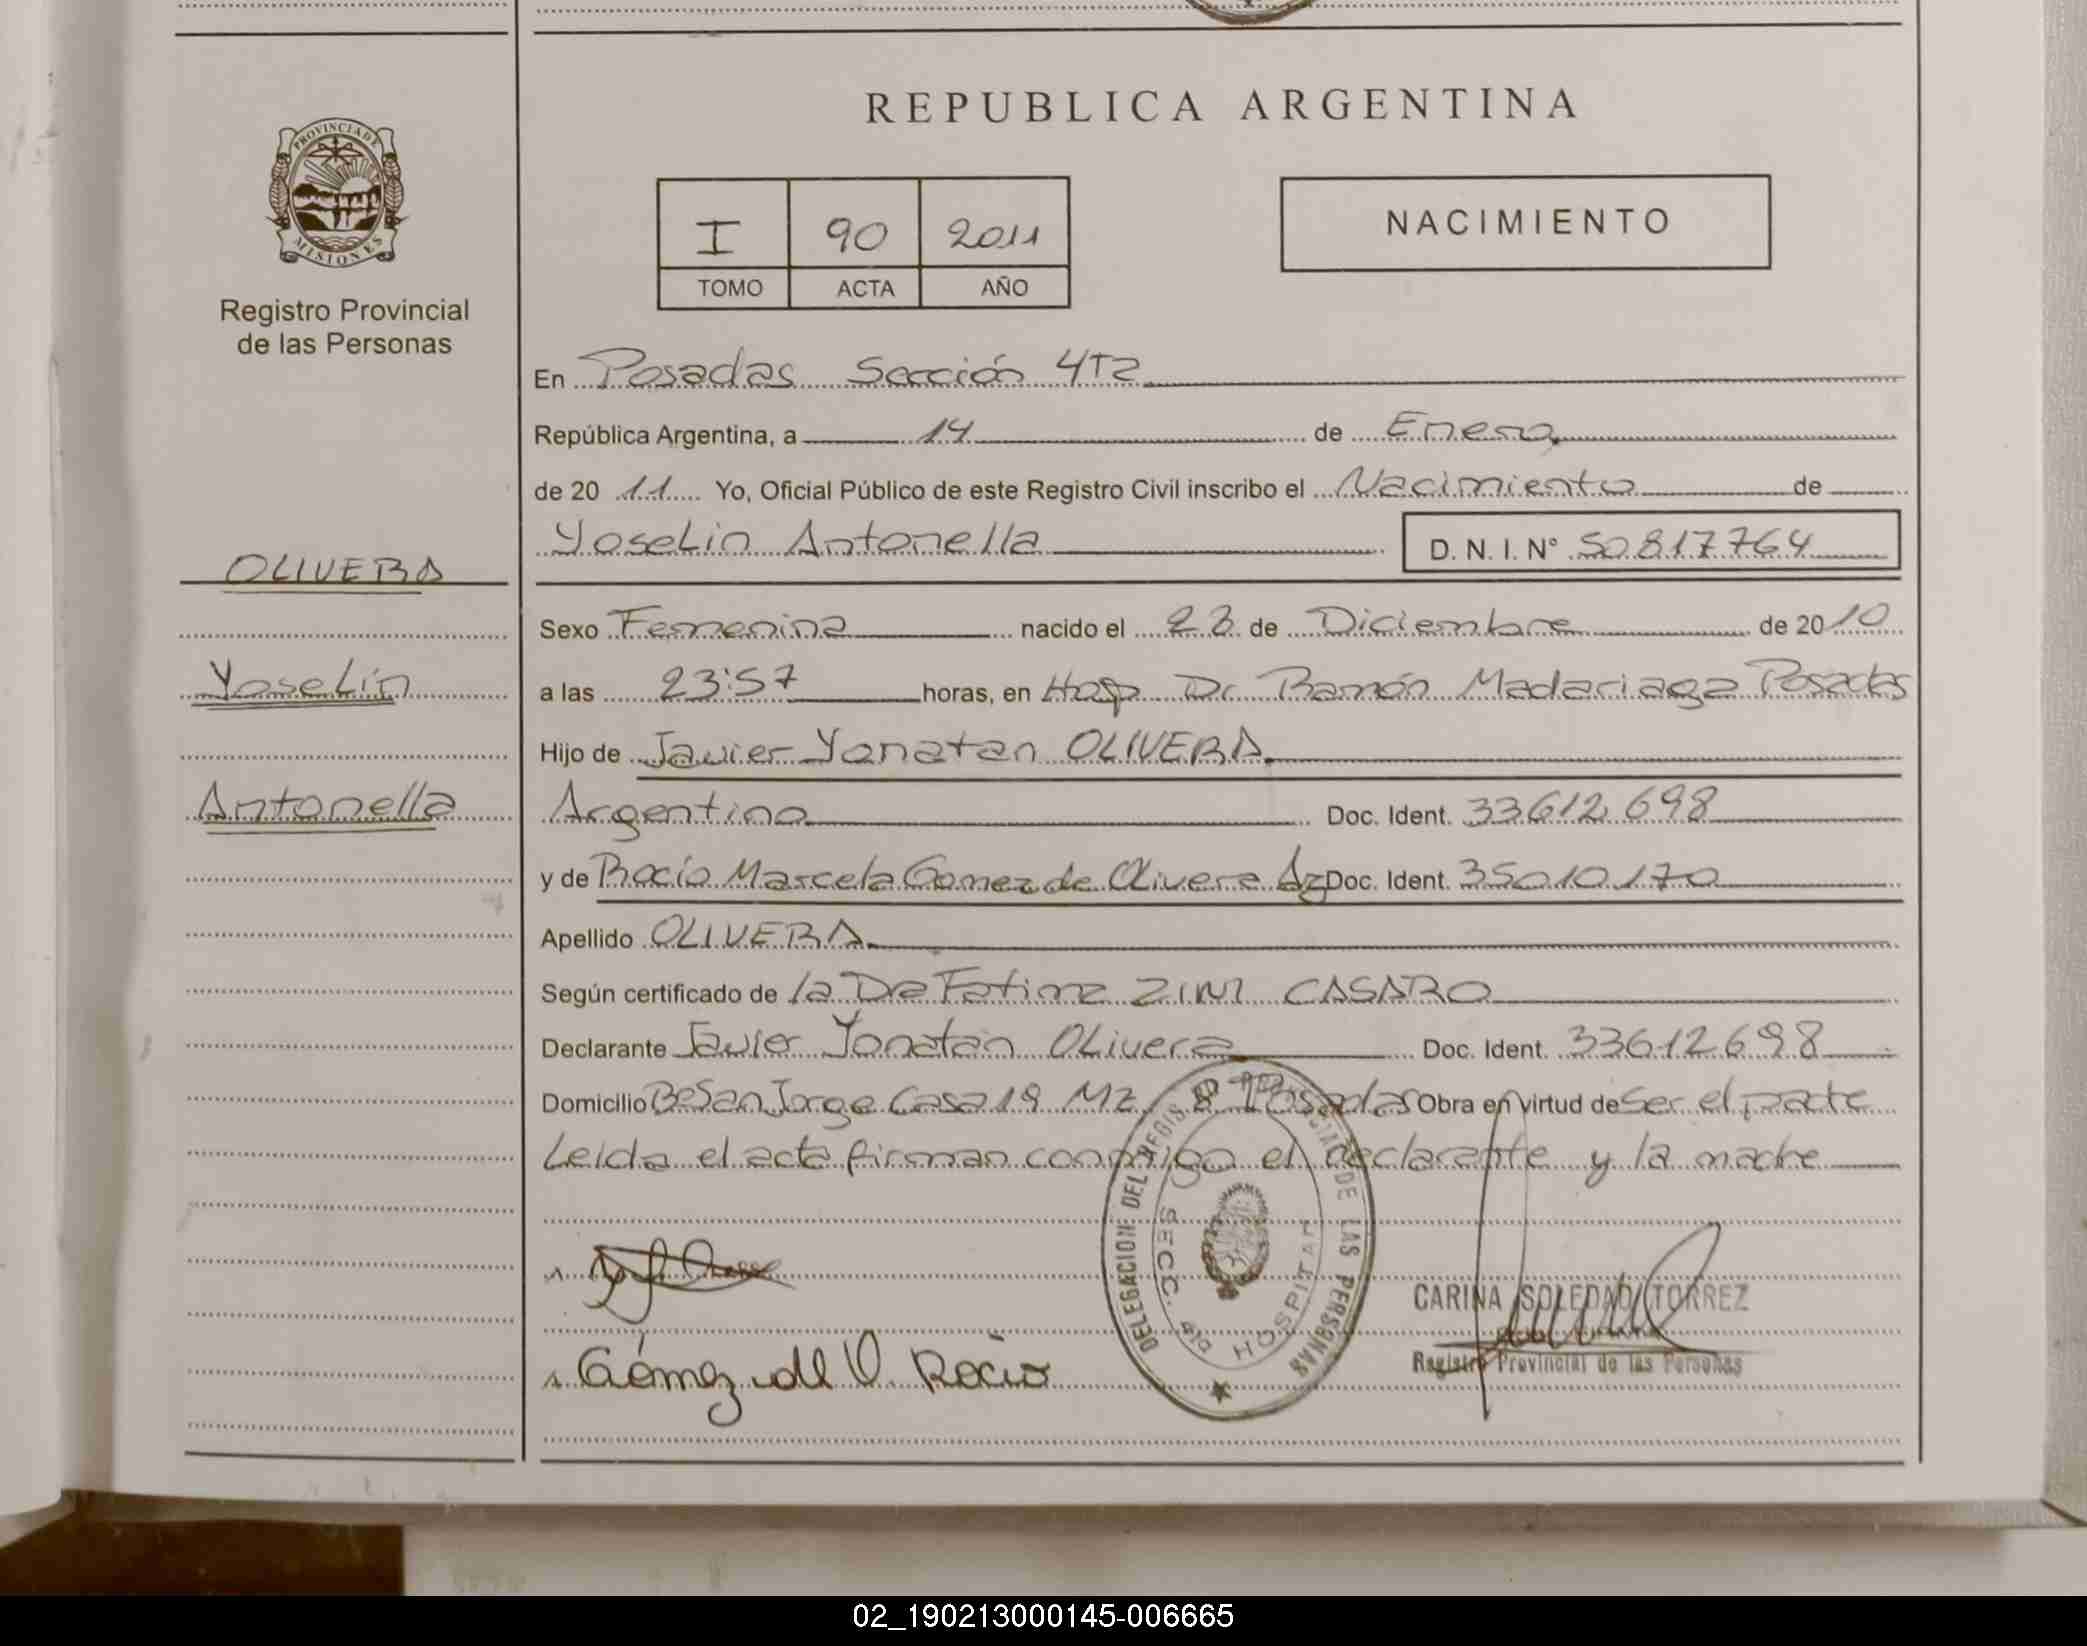 REPUBLICA ARGENTINA
PROVINCIA DE
MISIONES
Registro Provincial
de las Personas
I 90 2011
TOMO ACTA AÑO
NACIMIENTO
En Posadas Sección 4ta
República Argentina, a 14 de Enero
de 20 11 Yo, Oficial Público de este Registro Civil inscribo el Nacimiento de
Yoselin Antonella D. N. I. N° 50817764
OLIVERA
Yoselin
Antonella
Sexo Femenina nacido el 23 de Diciembre de 2010
a las 23:57 horas, en Hosp Dr. Ramón Madariaga Posadas
Hijo de Javier Yonatan OLIVERA
Argentino Doc. Ident. 33612698
y de Rocío Marcela Gomez de Olivera Ag Doc. Ident. 35010170
Apellido OLIVERA
Según certificado de la Dra Fatima ZINI CASARO
Declarante Javier Yonatan Olivera Doc. Ident. 33612698
Domicilio Bº San Jorge Casa 18 Mz 8 Posadas Obra en virtud de ser el padre
Leida el acta firman conmigo el declarante y la madre
DELEGACION DEL REGISTRO PROVINCIAL DE LAS PERSONAS
SECC. 4ta HOSPITAL
CARINA SOLEDAD TORREZ
Registro Provincial de las Personas
Gómez de O. Rocio
02_190213000145-006665